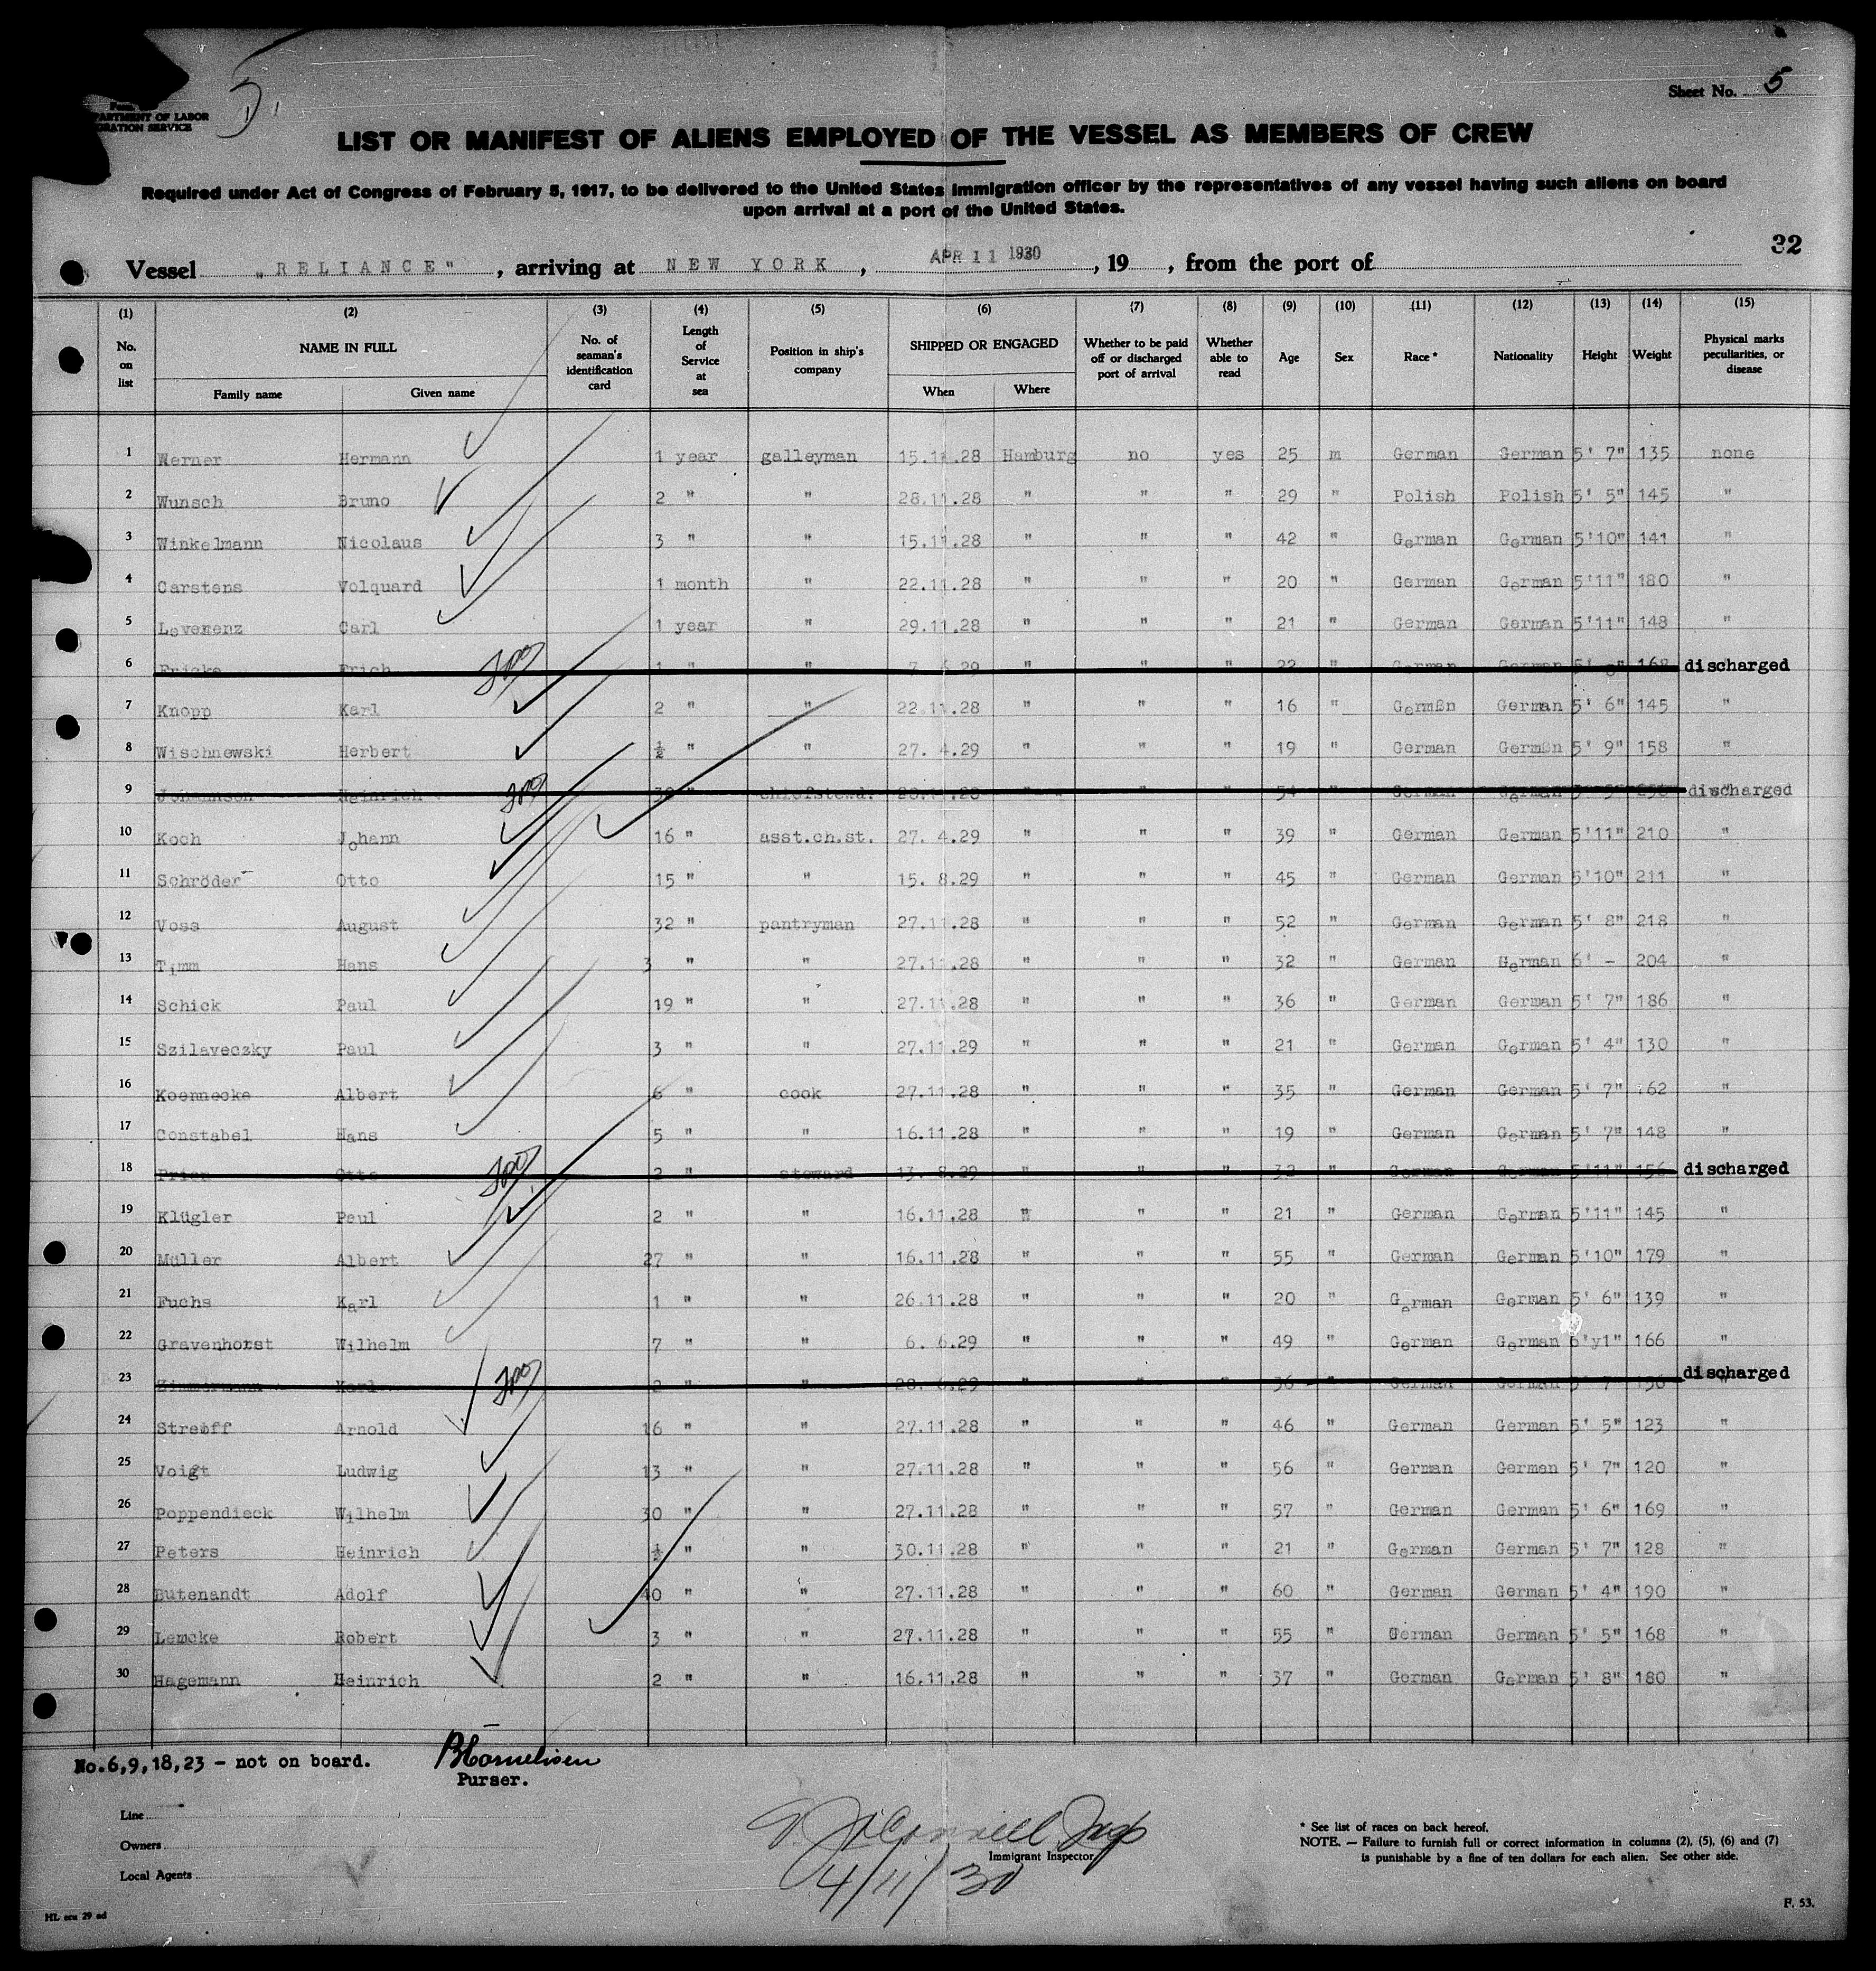 Sheet No. 5
PARTMENT OF LABOR
GRATION SERVICE
LIST OR MANIFEST OF ALIENS EMPLOYED OF THE VESSEL AS MEMBERS OF CREW
Required under Act of Congress of February 5, 1917, to be delivered to the United States Immigration officer by the representatives of any vessel having such aliens on board
upon arrival at a port of the United States.
32
Vessel „RELIANCE" , arriving at NEW YORK , APR 11 1930 , 19 , from the port of
(1) (2) (3) (4) (5) (6) (7) (8) (9) (10) (11) (12) (13) (14) (15)
No. on list NAME IN FULL Family name Given name No. of seaman's identification card Length of Service at sea Position in ship's company SHIPPED OR ENGAGED When Where Whether to be paid off or discharged port of arrival Whether able to read Age Sex Race * Nationality Height Weight Physical marks peculiarities, or disease
1 Werner Hermann 1 year galleyman 15.11.28 Hamburg no yes 25 m German German 5' 7" 135 none
2 Wunsch Bruno 2 " " 28.11.28 " " " 29 " Polish Polish 5' 5" 145 "
3 Winkelmann Nicolaus 3 " " 15.11.28 " " " 42 " German German 5'10" 141 "
4 Carstens Volquard 1 month " 22.11.28 " " " 20 " German German 5'11" 180 "
5 Leverenz Carl 1 year " 29.11.28 " " " 21 " German German 5'11" 148 "
6 Fricke Erich 1 " " 29 " " " 22 " German German 168 discharged
7 Knopp Karl 2 " " 22.11.28 " " " 16 " German German 5' 6" 145 "
8 Wischnewski Herbert ½ " " 27. 4.29 " " " 19 " German German 5' 9" 158 "
9 Johannsen Heinrich " chiefstewd. 28 " " " 54 " German German discharged
10 Koch Johann 16 " asst.ch.st. 27. 4.29 " " " 39 " German German 5'11" 210 "
11 Schröder Otto 15 " " 15. 8.29 " " " 45 " German German 5'10" 211 "
12 Voss August 32 " pantryman 27.11.28 " " " 52 " German German 5' 8" 218 "
13 Timm Hans 3 " " 27.11.28 " " " 32 " German German 6' - 204 "
14 Schick Paul 19 " " 27.11.28 " " " 36 " German German 5' 7" 186 "
15 Szilaveczky Paul 3 " " 27.11.29 " " " 21 " German German 5' 4" 130 "
16 Koennecke Albert 6 " cook 27.11.28 " " " 35 " German German 5' 7" 162 "
17 Constabel Hans 5 " " 16.11.28 " " " 19 " German German 5' 7" 148 "
18 Prien Otto 2 " steward 13. 8.29 " " " 32 " German German 5'11" 156 discharged
19 Klügler Paul 2 " " 16.11.28 " " " 21 " German German 5'11" 145 "
20 Müller Albert 27 " " 16.11.28 " " " 55 " German German 5'10" 179 "
21 Fuchs Karl 1 " " 26.11.28 " " " 20 " German German 5' 6" 139 "
22 Gravenhorst Wilhelm 7 " " 6. 6.29 " " " 49 " German German 6'y1" 166 "
23 Zimmermann Karl 2 " " 28. 6.29 " " " 36 " German German 5' 7" discharged
24 Streoff Arnold 16 " " 27.11.28 " " " 46 " German German 5' 5" 123 "
25 Voigt Ludwig 13 " " 27.11.28 " " " 56 " German German 5' 7" 120 "
26 Poppendieck Wilhelm 30 " " 27.11.28 " " " 57 " German German 5' 6" 169 "
27 Peters Heinrich ½ " " 30.11.28 " " " 21 " German German 5' 7" 128 "
28 Butenandt Adolf 40 " " 27.11.28 " " " 60 " German German 5' 4" 190 "
29 Lemcke Robert 3 " " 27.11.28 " " " 55 " German German 5' 5" 168 "
30 Hagemann Heinrich 2 " " 16.11.28 " " " 37 " German German 5' 8" 180 "
No.6,9,18,23 - not on board.
BCornelisen
Purser.
Line
Owners
Local Agents
Immigrant Inspector
4/11/30
* See list of races on back hereof.
NOTE. — Failure to furnish full or correct information in columns (2), (5), (6) and (7)
is punishable by a fine of ten dollars for each alien. See other side.
F. 53.